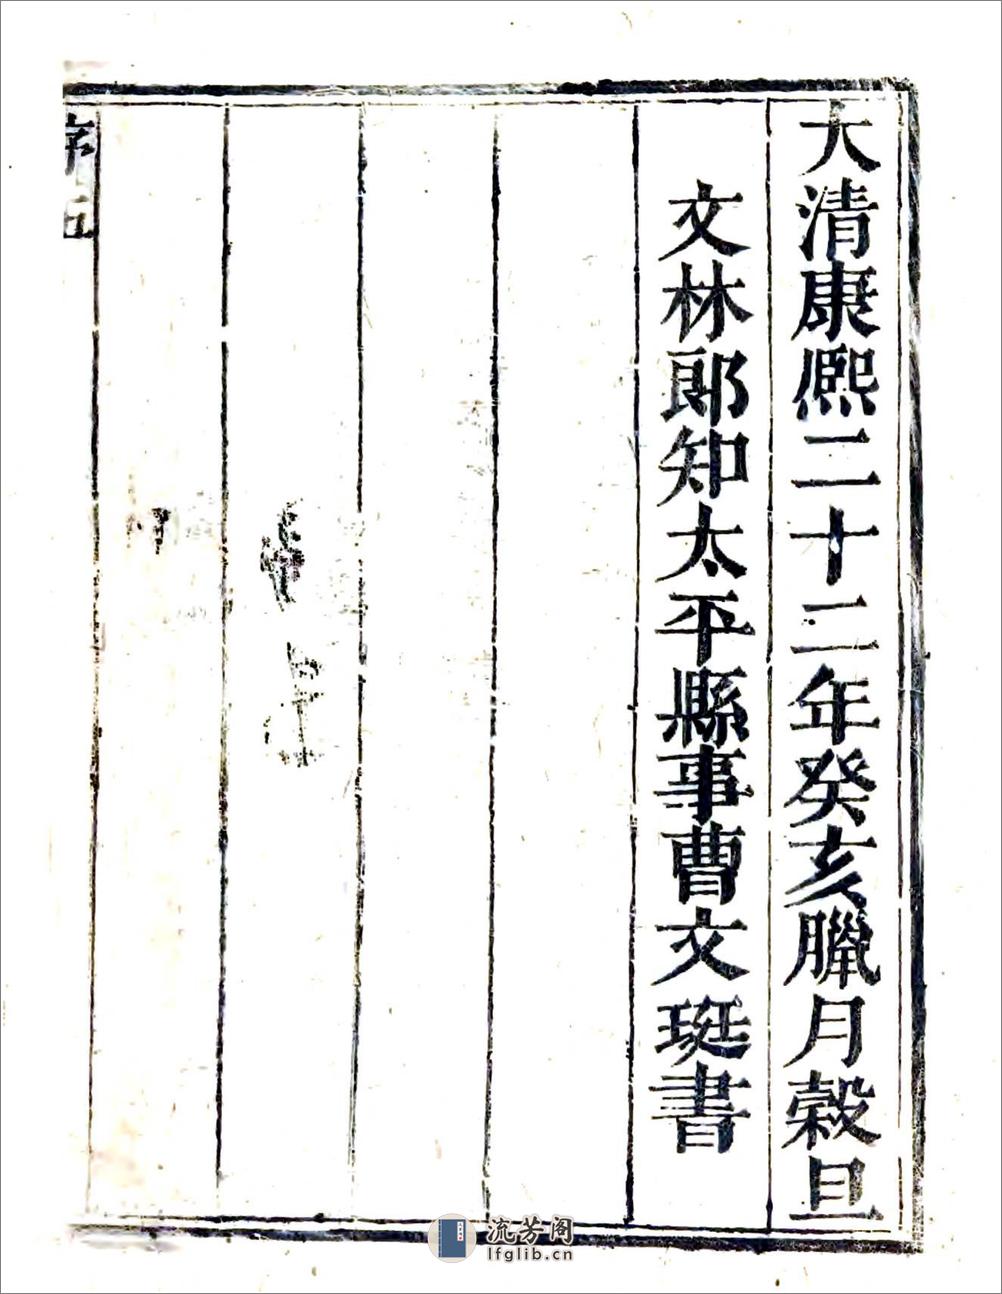 大清康熙二十二年癸亥臘月穀旦
文林郎知太平縣事曹文珽書
序五
流芳阁
lfglib.cn